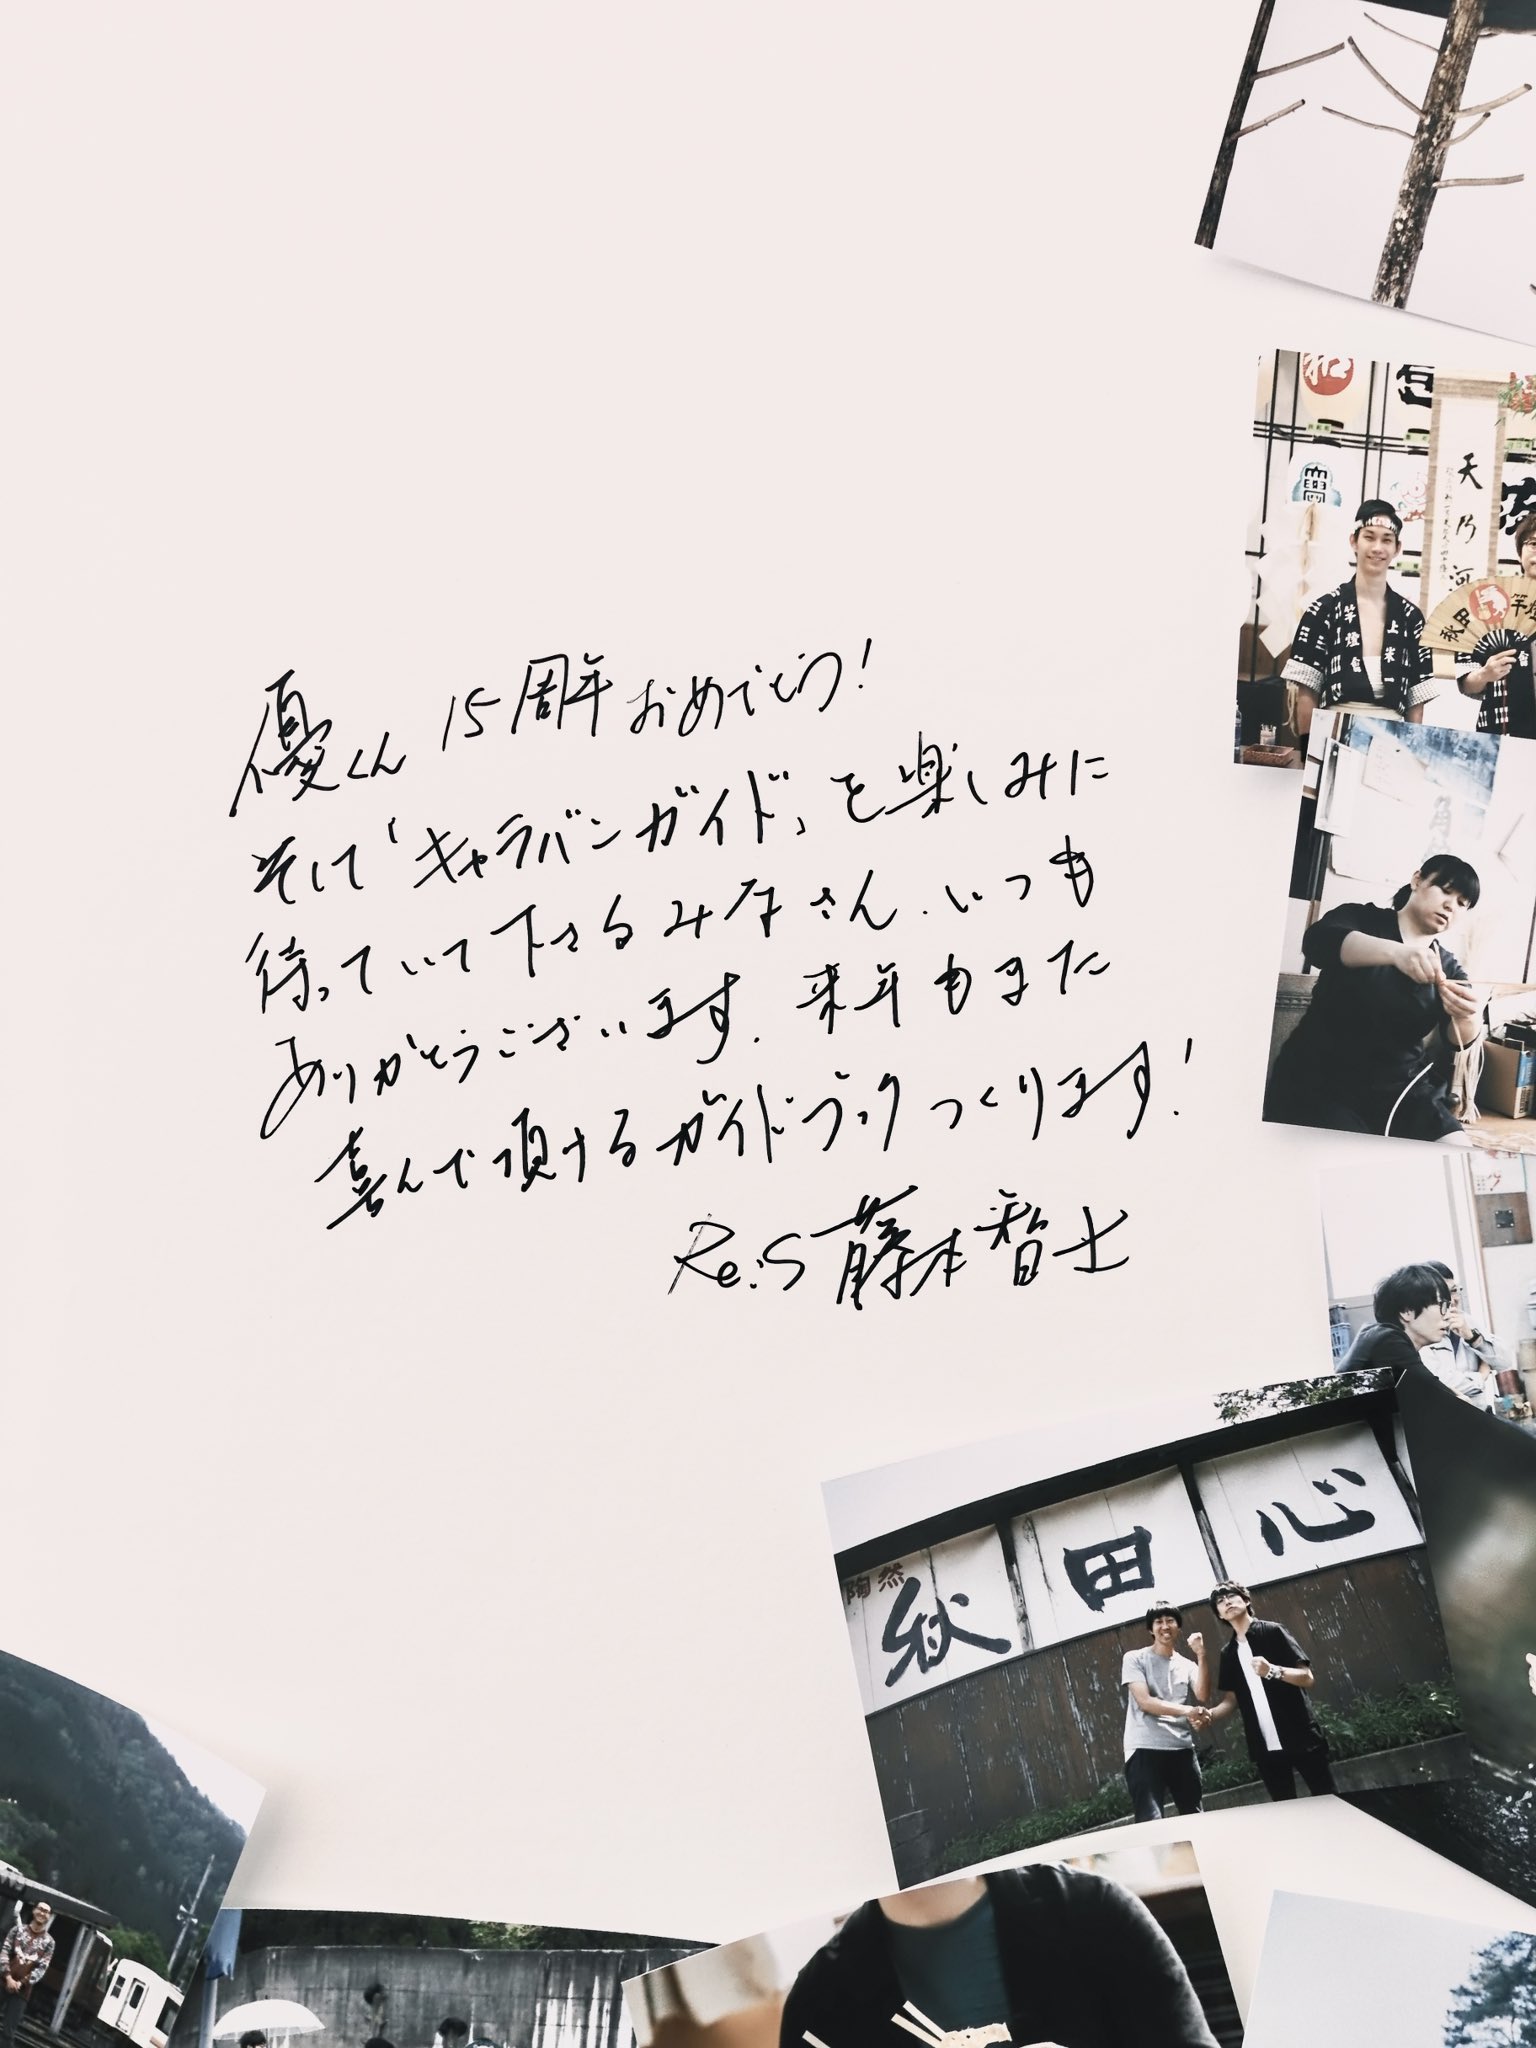 優くん 15周年おめでとう!
そして「キャラバンガイド」を楽しみに
待っていて下さるみなさん、いつも
ありがとうございます。来年もまた
喜んで頂けるガイドブックつくります!
Re:S 藤本智士
天乃河
秋田
竿燈
竿燈會
上米一
陶然
秋田心